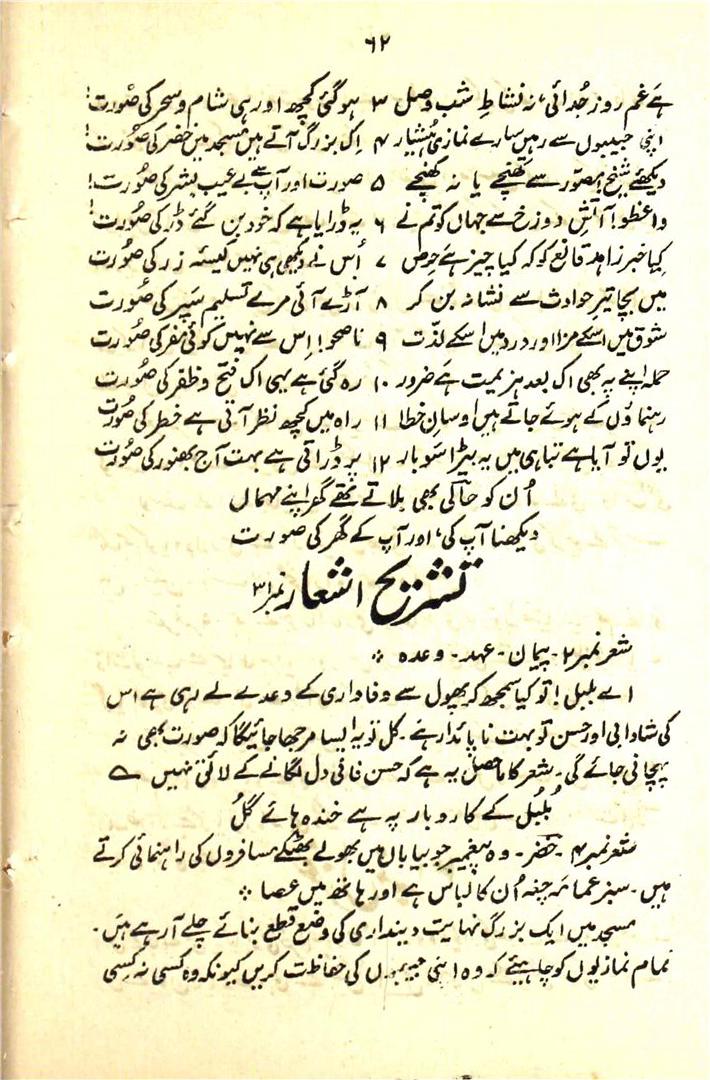 ۶۲
ہے غم روز جُدائی، نہ نشاطِ شب وصل ۳ ہو گئی کچھ اور ہی شام و سحر کی صُورت!
اپنی جیبوں سے رہیں سارے نمازی ہُشیار ۴ اِک بزرگ آتے ہیں مسجد میں خضر کی صُورت!
دیکھئے شیخ! مصوّر سے کھنچے یا نہ کھنچے ۵ صورت اور آپ سے بے عیب بشر کی صُورت!
واعظو! آتشِ دوزخ سے جہاں کو تم نے ۶ یہ ڈرایا ہے کہ خود بن گئے ڈر کی صُورت!
کیا خبر زاہد قانع کو کہ کیا چیز ہے حِرص ۷ اُس نے دیکھی ہی نہیں کیسئہ زر کی صُورت
میں بچا تیرِ حوادث سے نشانہ بن کر ۸ آڑے آئی مرے تسلیم سَپر کی صُورت
شوق میں اسکے مزا اور درد میں اسکے لذّت ۹ ناصحو! اِس سے نہیں کوئی مَفر کی صُورت
حملہ اپنے پہ بھی اک بعد ہزیمت ہے ضرور ۱۰ رہ گئی ہے یہی اک فتح و ظفر کی صُورت
رہنماؤں کے ہوئے جاتے ہیں اوسان خطا ۱۱ راہ میں کچھ نظر آتی ہے خطر کی صُورت
یوں تو آیا ہے تباہی میں یہ بیڑا سَو بار ۱۲ پر ڈراتی ہے بہت آج بھنور کی صُورت
اُن کو حالؔی بھی بلاتے تھے گھر اپنے مہمان
دیکھنا آپ کی، اور آپ کے گھر کی صورت
تشریح اشعار نمبر ۳۱
شعر نمبر ۲۔ پیمان۔ عہد۔ وعدہ ٭
اے بلبل! تو کیا سمجھ کر پھول سے وفاداری کے وعدے لے رہی ہے اس
کی شادابی اور حسن تو بہت ناپائدار ہے۔ کل تو یہ ایسا مرجھا جائیگا کہ صورت بھی نہ
پہچانی جائے گی۔ شعر کا ماحصل یہ ہے کہ حسن فانی دل لگانے کے لائق نہیں ے
بُلبُل کے کاروبار پہ ہے خندہ ہائے گُل
شعر نمبر ۴۔ خضر۔ وہ پیغمبر جو بیاباں میں بھولے بھٹکے مسافروں کی راہنمائی کرتے
ہیں۔ سبز عمامہ چغہ اُن کا لباس ہے اور ہاتھ میں عصا ٭
مسجد میں ایک بزرگ نہایت دینداری کی وضع قطع بنائے چلے آ رہے ہیں۔
تمام نمازیوں کو چاہیئے کہ وہ اپنی جیبوں کی حفاظت کریں کیونکہ وہ کسی نہ کسی